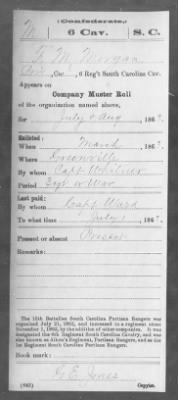 (Confederate.)
M 6 Cav. S. C.
T. M. Morgan
Co., 6 Reg't South Carolina Cav.
Appears on
Company Muster Roll
of the organization named above,
for July & Aug, 186
Enlisted:
When March, 186
Where Greenville
By whom Capt
Period 3 yrs or War
Last paid:
By whom Capt Ward
To what time July 1, 186
Present or absent Present
Remarks:
The 16th Battalion South Carolina Partisan Rangers was
organized July 21, 1862, and increased to a regiment about
November 1, 1862, by the addition of other companies. It was
designated the 6th Regiment South Carolina Cavalry, and was
also known as Aiken's Regiment, Partisan Rangers, and as the
1st Regiment South Carolina Partisan Rangers.
Book mark:
G. E. Jones
(642) Copyist.